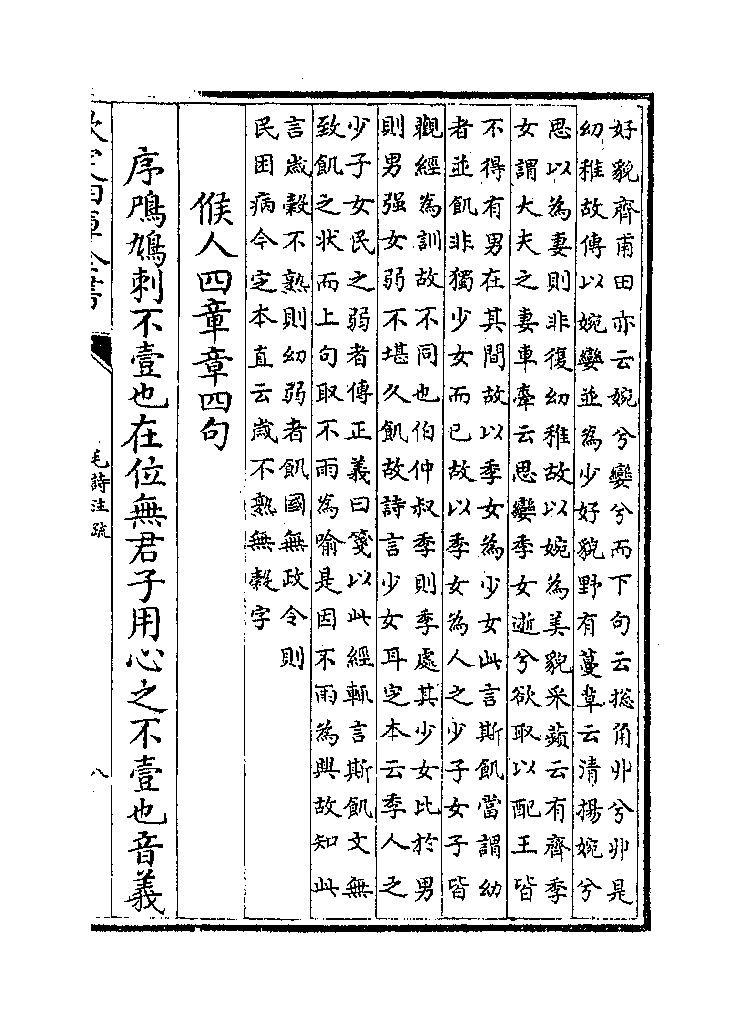 好貌齊甫田亦云婉兮孌兮而下句云捴角丱兮丱是
幼稚故傳以婉孌並為少好貌野有蔓草云清揚婉兮
思以為妻則非復幼稚故以婉為美貌采蘋云有齊季
女謂大夫之妻車舝云思孌季女逝兮欲取以配王皆
不得有男在其間故以季女為少女此言斯飢當謂幼
者並飢非獨少女而已故以季女為人之少子女子皆
觀經為訓故不同也伯仲叔季則季處其少女比於男
則男强女弱不堪久飢故詩言少女耳定本云季人之
少子女民之弱者傳正義曰箋以此經輒言斯飢文無
致飢之状而上句取不雨為喻是因不雨為興故知此
言歲穀不熟則幼弱者飢國無政令則
民困病今定本直云歲不熟無穀字
候人四章章四句
序鳲鳩刺不壹也在位無君子用心之不壹也音義
欽定四庫全書
毛詩注疏
八